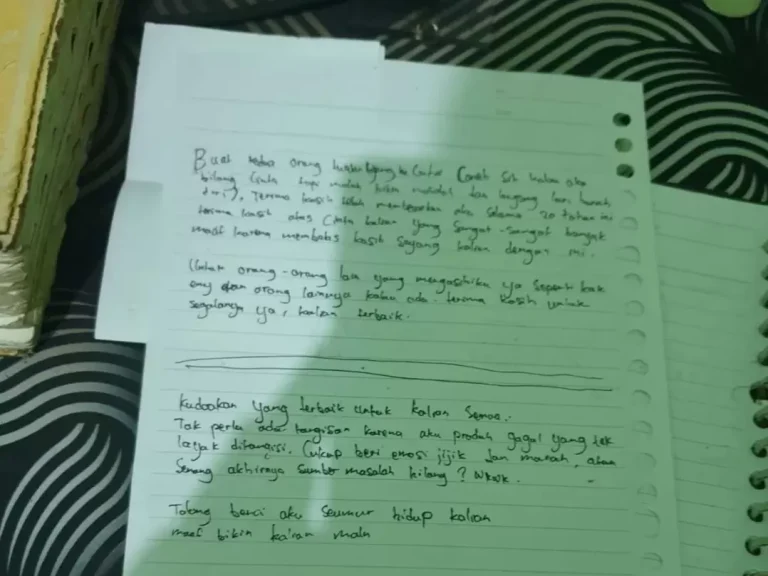 Buat kedua orang
bilang cinta tapi malah
terima kasih telah membesarkan aku selama 20 tahun ini
terima kasih atas cinta kalian yang sangat-sangat banyak
maaf karena membalas kasih sayang kalian dengan ini.
Untuk orang-orang lain yang mengasihiku ya seperti kak
dan orang lainnya kalau ada. terima kasih untuk
segalanya ya, kalian terbaik.
Kudoakan yang terbaik untuk kalian semua..
Tak perlu ada tangisan karena aku produk gagal yang tak
layak ditangisi. Cukup beri emosi jijik dan marah, atau
Senang akhirnya sumber masalah hilang? Wkwk.
Tolong benci aku seumur hidup kalian
maaf bikin kalian malu